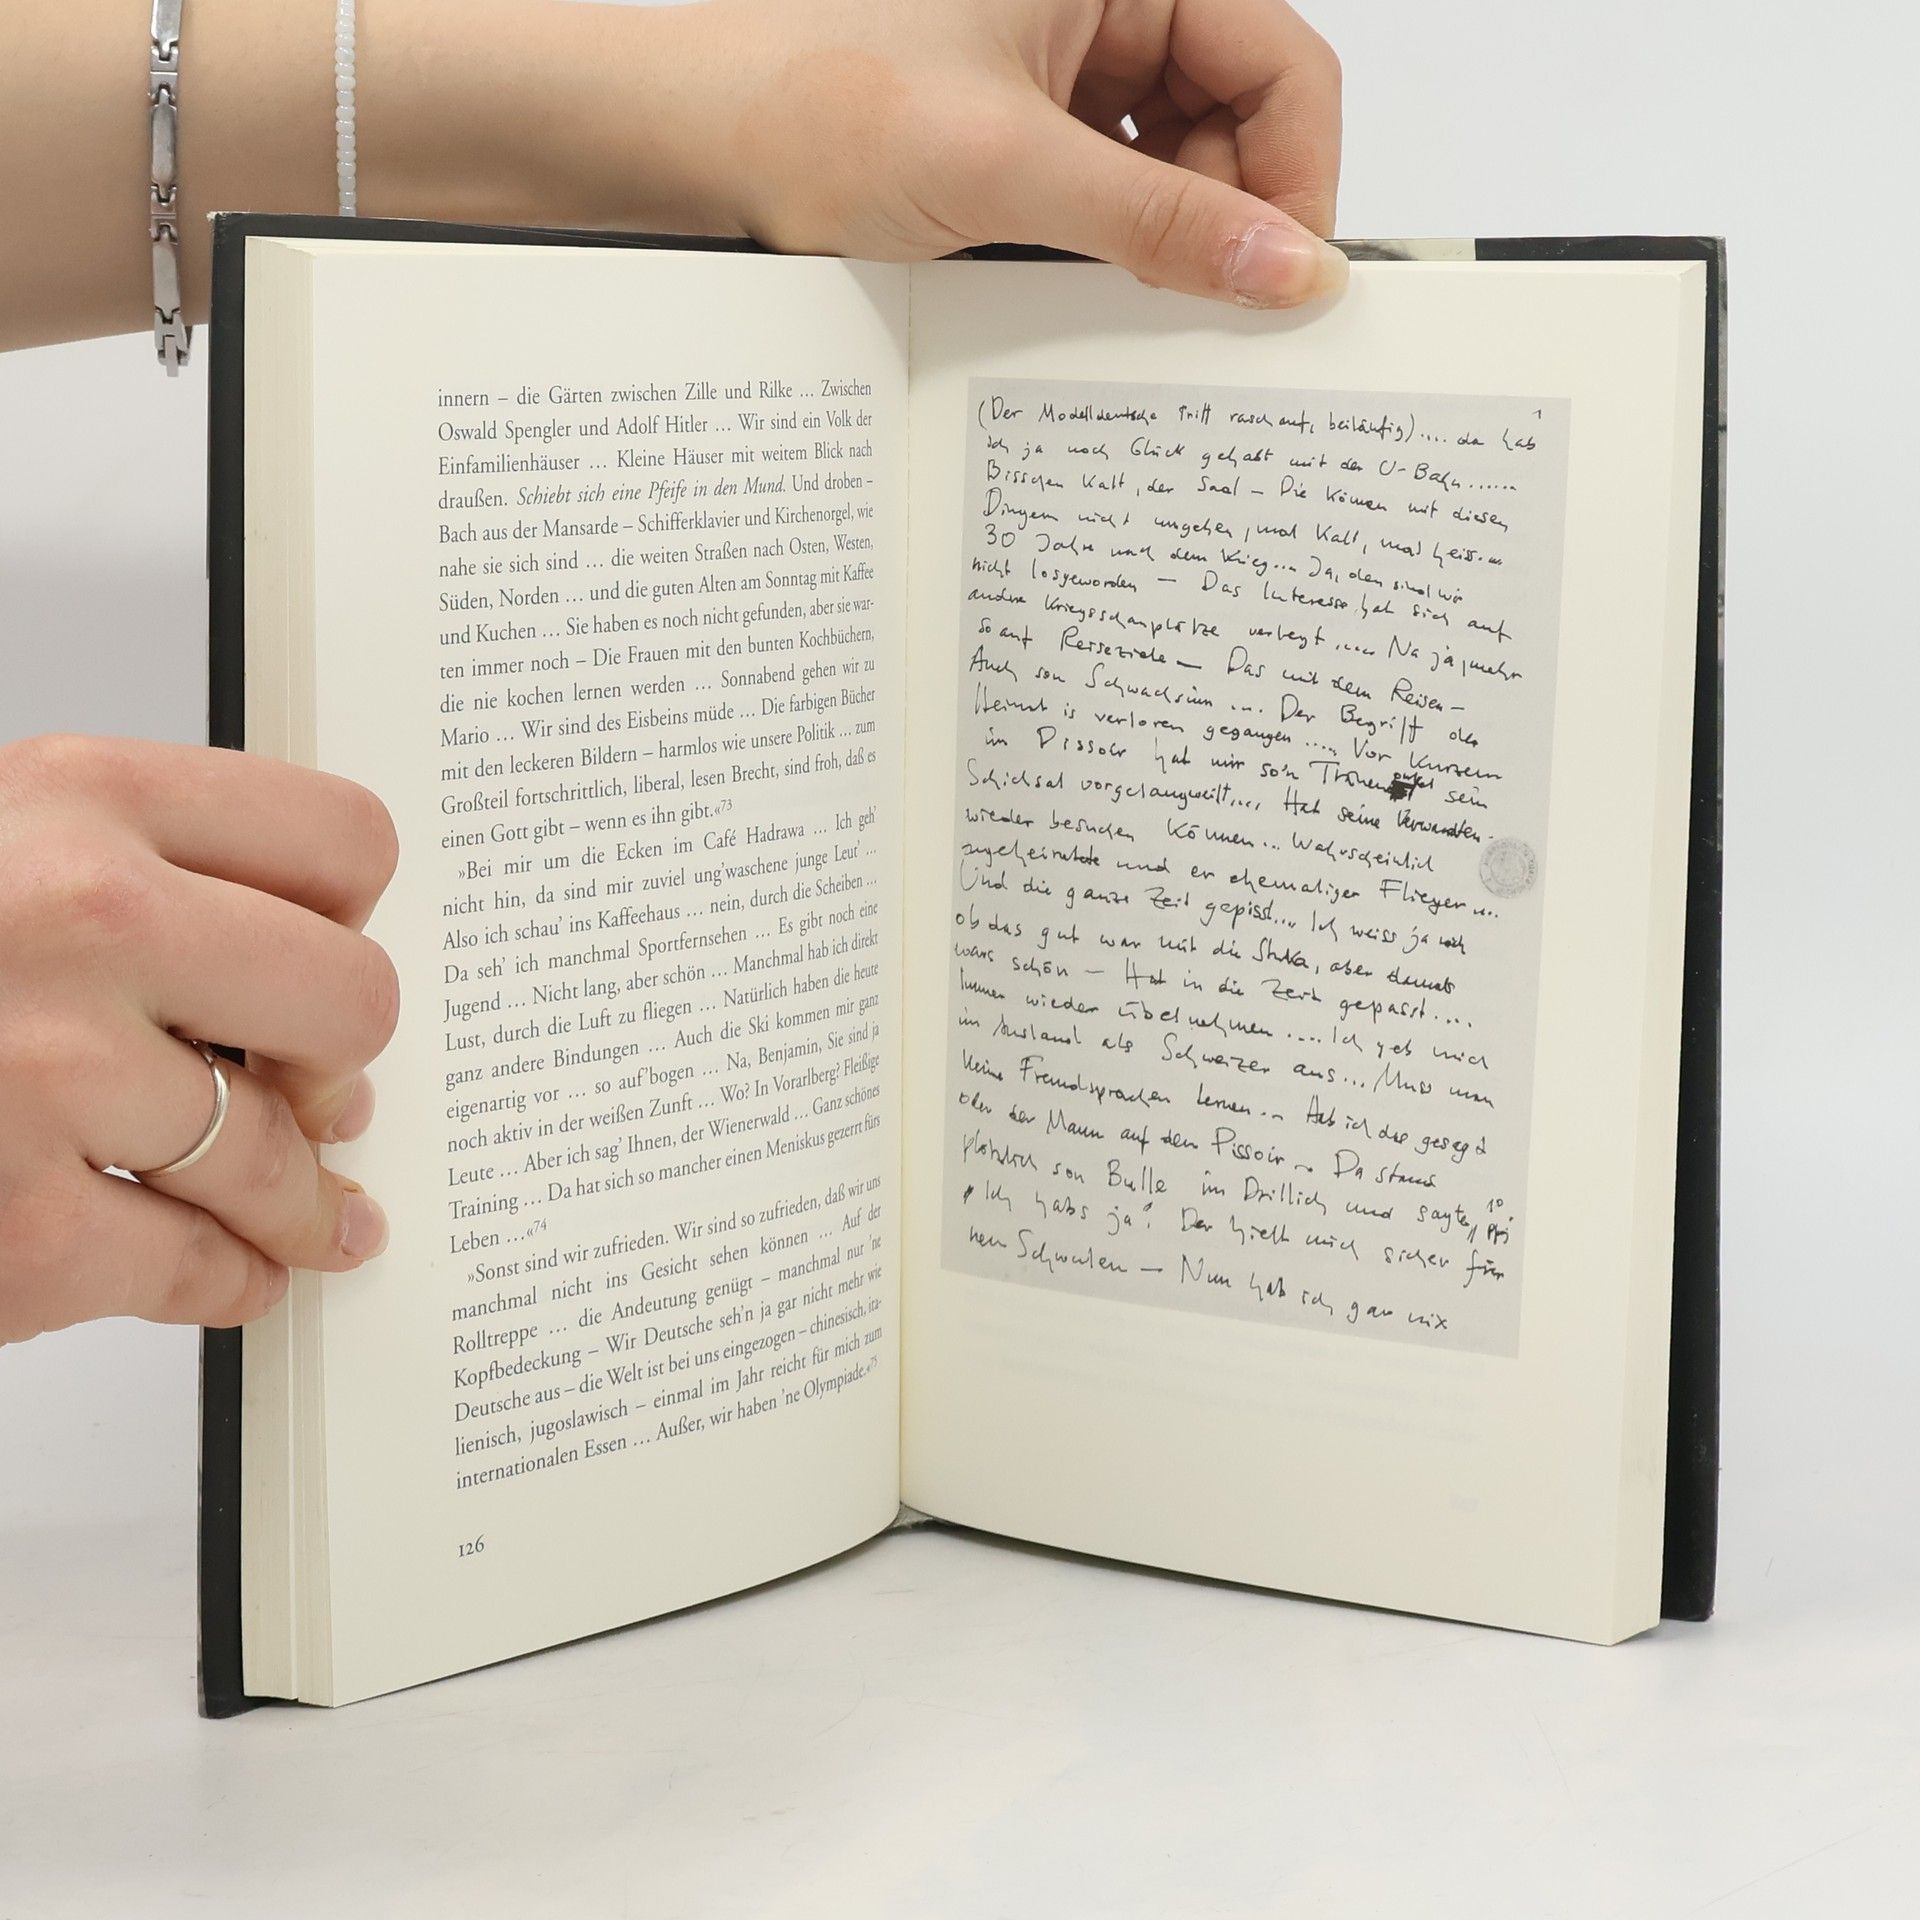 innern – die Gärten zwischen Zille und Rilke … Zwischen
Oswald Spengler und Adolf Hitler … Wir sind ein Volk der
Einfamilienhäuser … Kleine Häuser mit weitem Blick nach
draußen. Schiebt sich eine Pfeife in den Mund. Und droben –
Bach aus der Mansarde – Schifferklavier und Kirchenorgel, wie
nahe sie sich sind … die weiten Straßen nach Osten, Westen,
Süden, Norden … und die guten Alten am Sonntag mit Kaffee
und Kuchen … Sie haben es noch nicht gefunden, aber sie war-
ten immer noch – Die Frauen mit den bunten Kochbüchern,
die nie kochen lernen werden … Sonnabend gehen wir zu
Mario … Wir sind des Eisbeins müde … Die farbigen Bücher
mit den leckeren Bildern – harmlos wie unsere Politik … zum
Großteil fortschrittlich, liberal, lesen Brecht, sind froh, daß es
einen Gott gibt – wenn es ihn gibt.«73
»Bei mir um die Ecken im Café Hadrawa … Ich geh’
nicht hin, da sind mir zuviel ung’waschene junge Leut’ …
Also ich schau’ ins Kaffeehaus … nein, durch die Scheiben …
Da seh’ ich manchmal Sportfernsehen … Es gibt noch eine
Jugend … Nicht lang, aber schön … Manchmal hab ich direkt
Lust, durch die Luft zu fliegen … Natürlich haben die heute
ganz andere Bindungen … Auch die Ski kommen mir ganz
eigenartig vor … so auf’bogen … Na, Benjamin, Sie sind ja
noch aktiv in der weißen Zunft … Wo? In Vorarlberg? Fleißige
Leute … Aber ich sag’ Ihnen, der Wienerwald … Ganz schönes
Training … Da hat sich so mancher einen Meniskus gezerrt fürs
Leben …«74
»Sonst sind wir zufrieden. Wir sind so zufrieden, daß wir uns
manchmal nicht ins Gesicht sehen können … Auf der
Rolltreppe … die Andeutung genügt – manchmal nur ’ne
Kopfbedeckung – Wir Deutsche seh’n ja gar nicht mehr wie
Deutsche aus – die Welt ist bei uns eingezogen – chinesisch, ita-
lienisch, jugoslawisch – einmal im Jahr reicht für mich zum
internationalen Essen … Außer, wir haben ’ne Olympiade.«75
126
1
(Der Modelldeutsche tritt rasch auf, beiläufig).... da hab
ich ja noch Glück gehabt mit der U-Bahn......
Bisschen kalt, der Saal – Die können mit diesen
Dingern nicht umgehen, mal kalt, mal heiss...
30 Jahre nach dem Krieg... Ja, den sind wir
nicht losgeworden – Das Interesse hat sich auf
andre Kriegsschauplätze verlegt ..... Na ja, mehr
so auf Reiseziele – Das mit dem Reisen –
Auch son Schwachsinn ... Der Begriff der
Heimat is verloren gegangen ..... Vor kurzem
im Pissoir hat mir so'n Tränen sein
Schicksal vorgelangweilt.... Hat seine Verwandten
wieder besuchen können... Wahrscheinlich
zugeheiratete und er ehemaliger Flieger ...
Und die ganze Zeit gepisst.... Ich weiss ja nich
ob das gut war mit die Stuka, aber damals
wars schön – Hat in die Zeit gepasst....
Immer wieder übelnehmen .... Ich geb mich
im Ausland als Schweizer aus... Muss man
keine Fremdsprachen lernen... Hab ich das gesagt
oder der Mann auf dem Pissoir – Da stand
plötzlich son Bulle im Drillich und sagte, 10 Pfg
"Ich habs ja". Der hielt mich sicher für
nen Schwulen – Nun hab ich gar nix